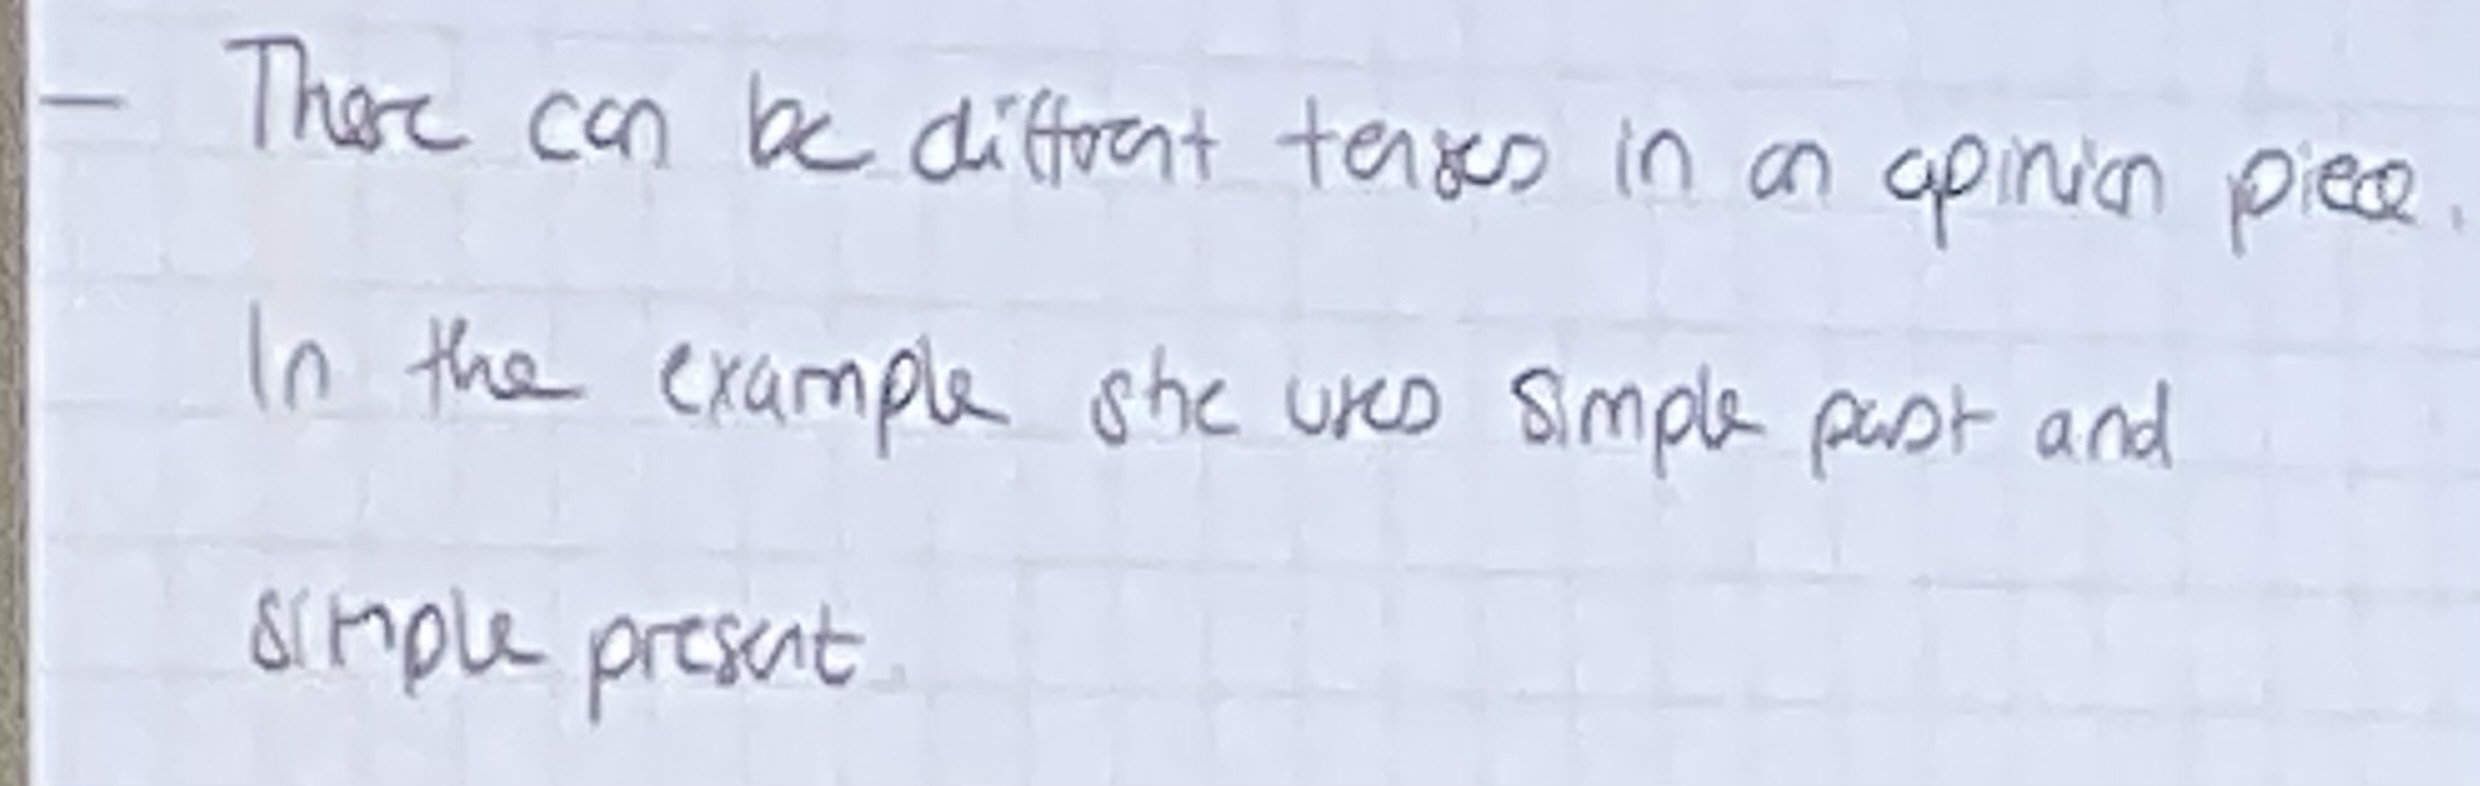 - There can be diffrent tenses in an opinion piece.
In the example she uses simple past and
simple present.